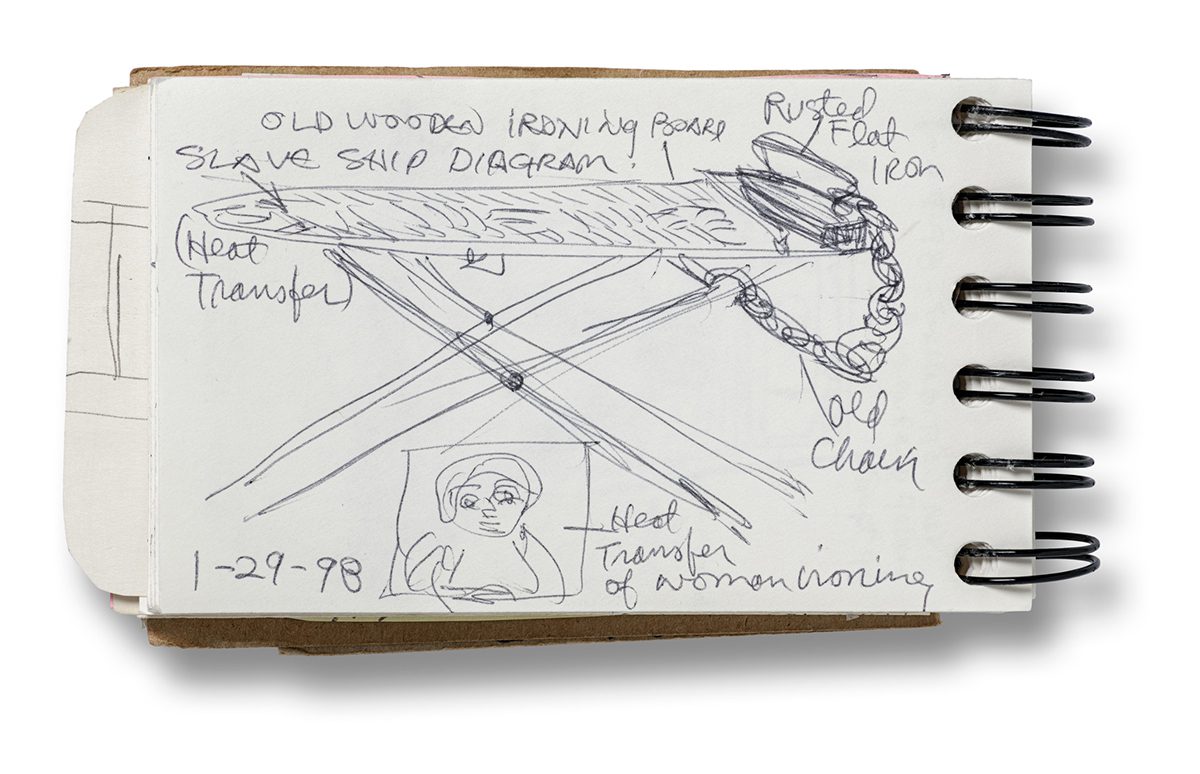 OLD WOODEN IRONING BOARD
SLAVE SHIP DIAGRAM.
Rusted
Flat
IRON
(Heat
Transfer)
old
Chain
Heat
Transfer
of woman ironing
1-29-98